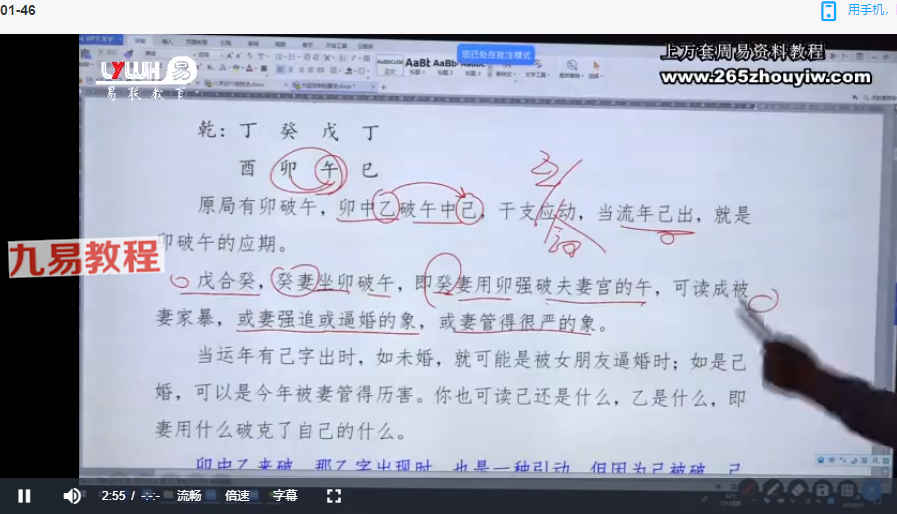 01-46
用手机,
上万套周易资料教程
www.265zhouyiw.com
LYWH易
易联教育
AaBb AaBb
乾：丁 癸 戊 丁
酉 卯 午 巳
原局有卯破午，卯中乙破午中己，干支应动，当流年己出，就是
卯破午的应期。
九易教程
戊合癸，癸妻坐卯破午，即癸妻用卯强破夫妻宫的午，可读成被
妻家暴，或妻强追或逼婚的象，或妻管得很严的象。
当运年有己字出时，如未婚，就可能是被女朋友逼婚时；如是已
婚，可以是今年被妻管得历害。你也可读己还是什么，乙是什么，即
妻用什么破克了自己的什么。
卯中乙来破，那乙字出现时，也是一种引动，但因为己被破，己
2:55 / -:-
流畅
倍速
字幕